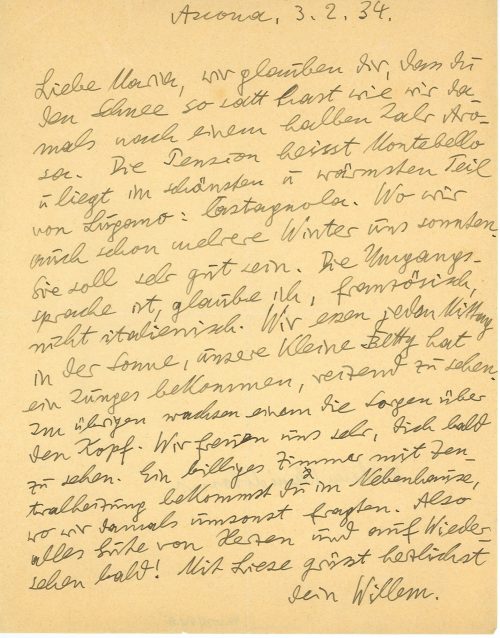 Ascona, 3. 2. 34.
Liebe Maria, wir glauben dir, dass du
den Schnee so satt hast wie wir da
mals nach einem halben Jahr Aro-
sa. Die Pension heisst Montebello
u liegt im schönsten u wärmsten Teil
von Lugano: Castagnola. Wo wir
auch schon mehrere Winter uns sonnten.
Sie soll sehr gut sein. Die Umgangs-
sprache ist, glaube ich, französisch,
nicht italienisch. Wir essen jeden Mittag
in der Sonne, unsere kleine Betty hat
ein Junges bekommen, reizend zu sehen
Im übrigen wachsen einem die Sorgen über
den Kopf. Wir freuen uns sehr, dich bald
zu sehen. Ein billiges Zimmer mit Zen-
tralheizung bekommst du im Nebenhause,
wo wir damals umsonst fragten. Also
alles Gute von Herzen und auf Wieder-
sehen bald! Mit Liese grüsst herzlichst
dein Willem.